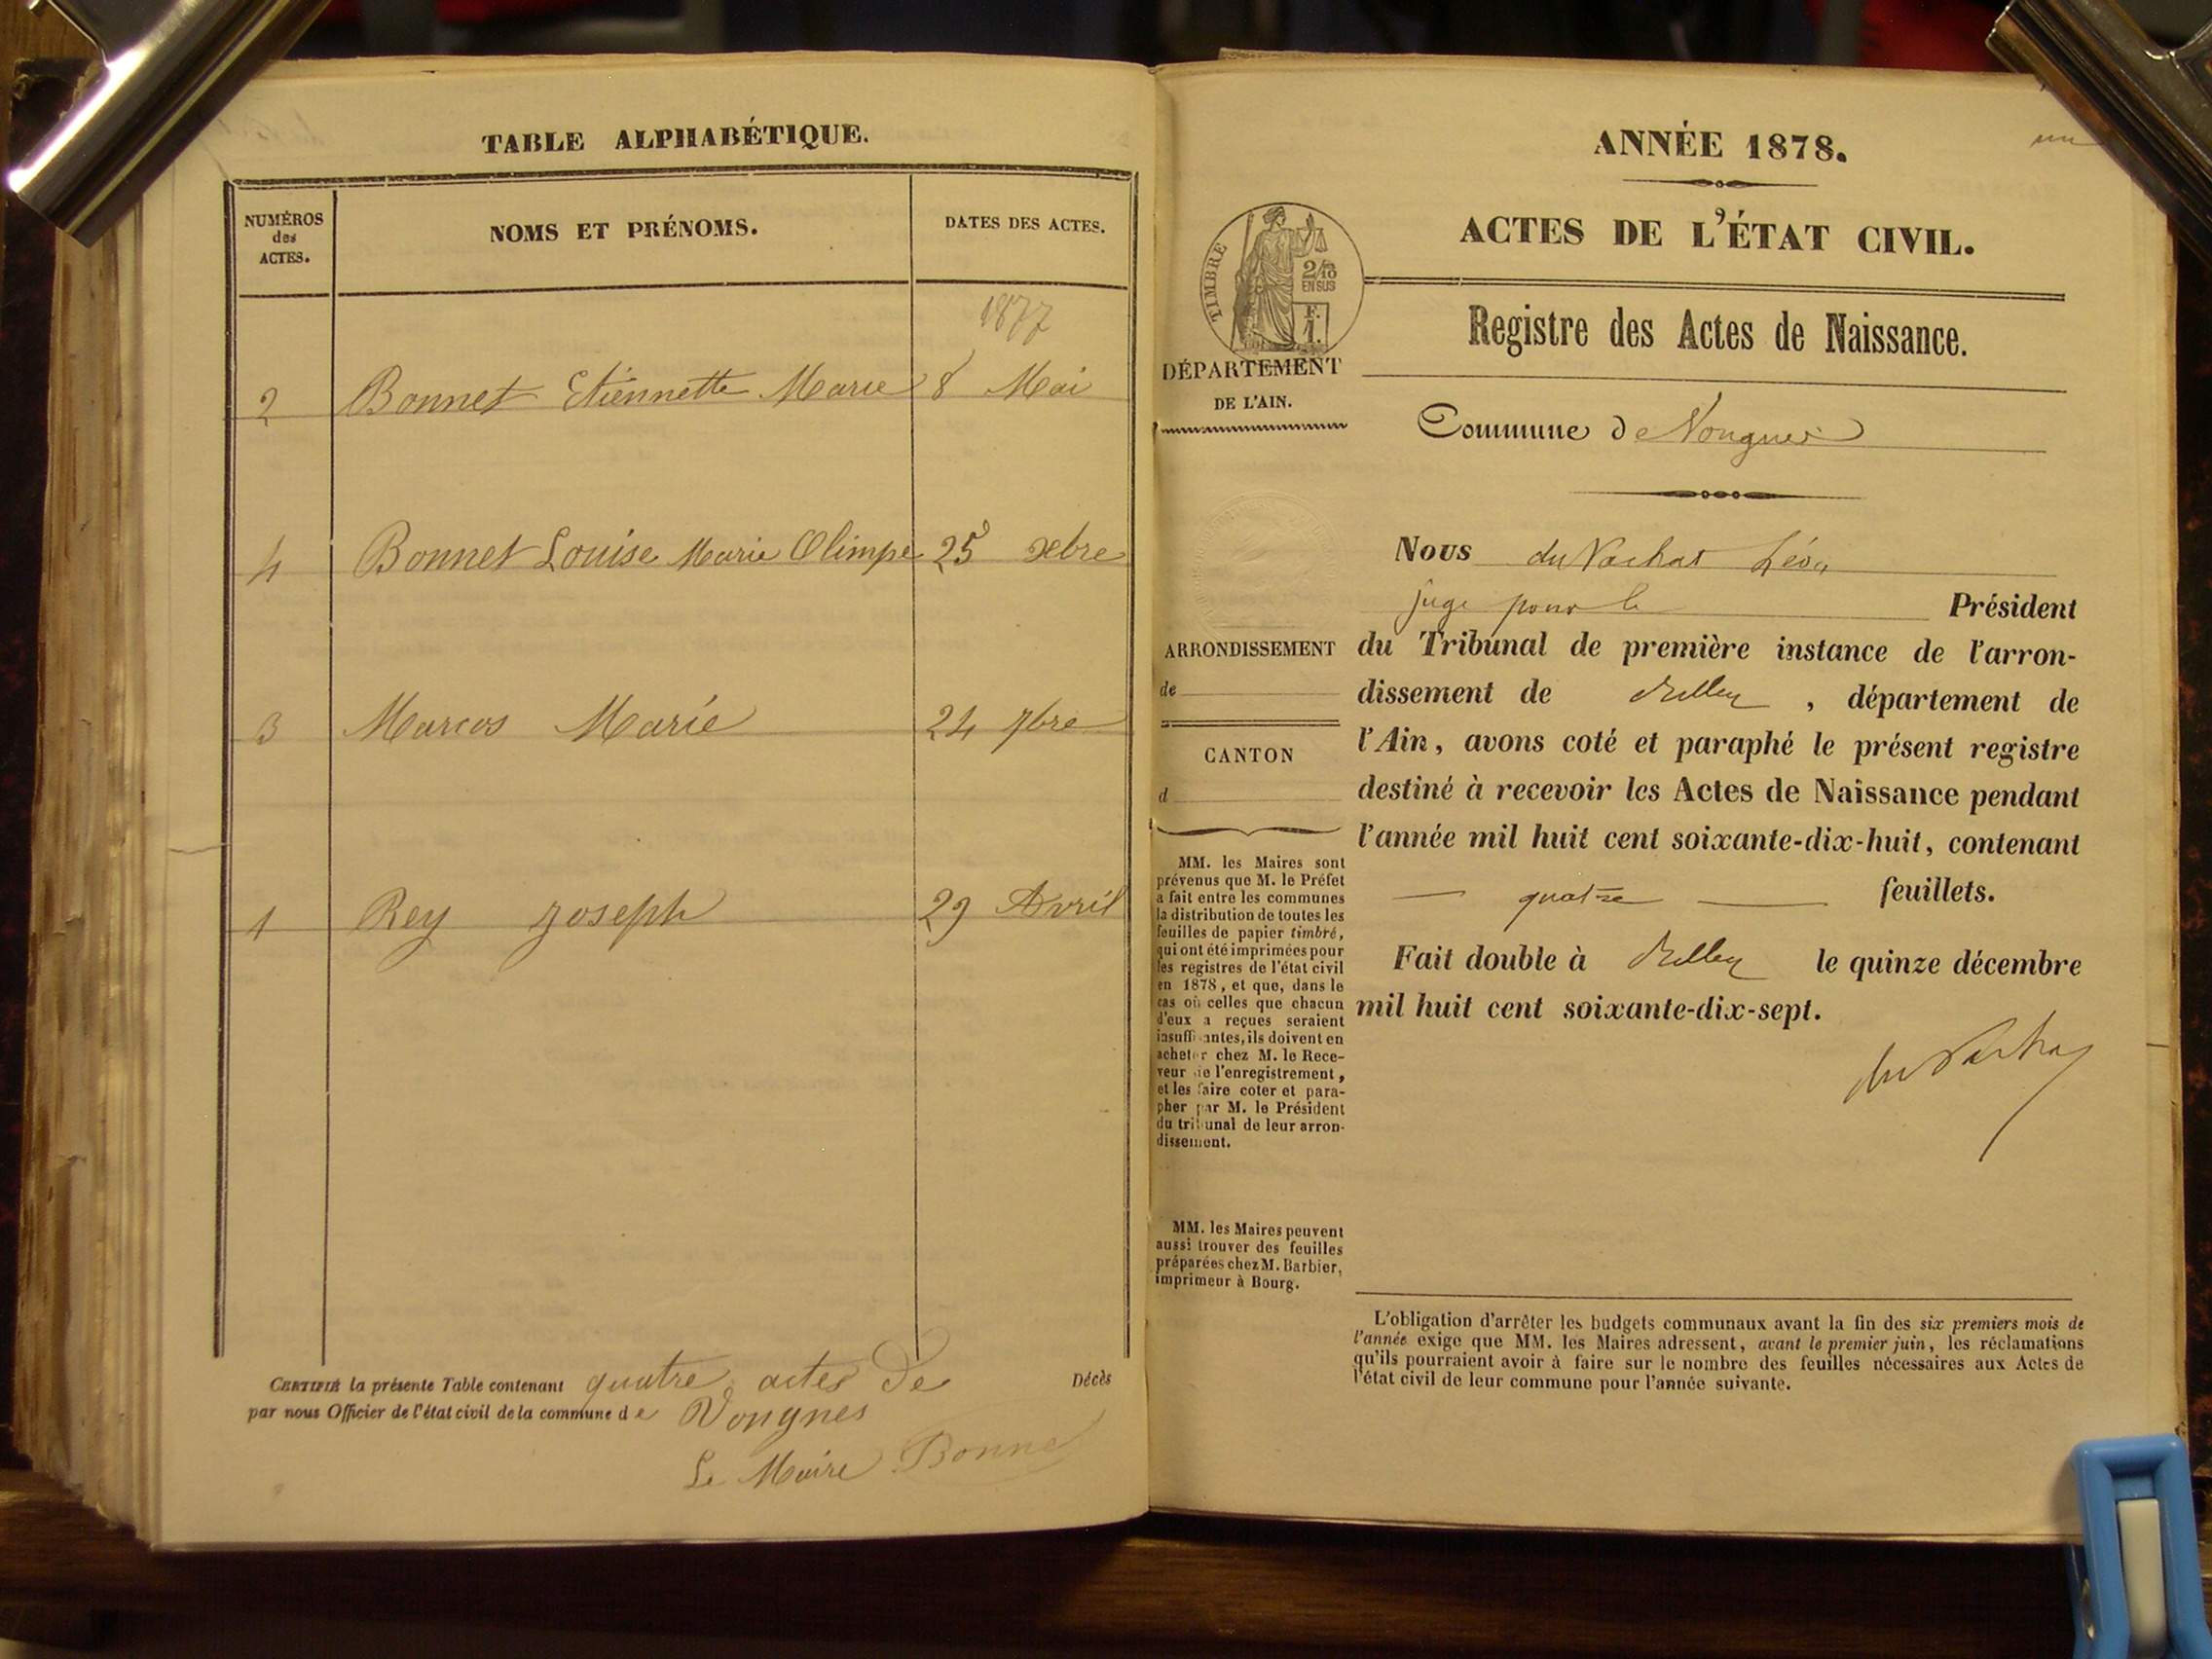 TABLE ALPHABÉTIQUE.
NUMÉROS des ACTES. NOMS ET PRÉNOMS. DATES DES ACTES.
1877
2 Bonnet Etiennette Marie 8 Mai
4 Bonnet Louise Marie Olimpe 25 xbre
3 Marcos Marie 24 7bre
1 Rey Joseph 29 Avril
CERTIFIÉ la présente Table contenant quatre actes de Décès
par nous Officier de l'état civil de la commune de Vongnes
Le Maire Bonnet
un
ANNÉE 1878.
ACTES DE L'ÉTAT CIVIL.
TIMBRE
2/10
EN SUS
F.
1.
Registre des Actes de Naissance.
DÉPARTEMENT
DE L'AIN.
Commune de Vongnes
Nous du Vachat Léon
juge pour le Président
du Tribunal de première instance de l'arron-
dissement de Belley, département de
l'Ain, avons coté et paraphé le présent registre
destiné à recevoir les Actes de Naissance pendant
l'année mil huit cent soixante-dix-huit, contenant
— quatre — feuillets.
Fait double à Belley le quinze décembre
mil huit cent soixante-dix-sept.
du Vachat
ARRONDISSEMENT
de
CANTON
d
MM. les Maires sont
prévenus que M. le Préfet
a fait entre les communes
la distribution de toutes les
feuilles de papier timbré,
qui ont été imprimées pour
les registres de l'état civil
en 1878, et que, dans le
cas où celles que chacun
d'eux a reçues seraient
insuffisantes, ils doivent en
acheter chez M. le Rece-
veur de l'enregistrement,
et les faire coter et para-
pher par M. le Président
du tribunal de leur arron-
dissement.
MM. les Maires peuvent
aussi trouver des feuilles
préparées chez M. Barbier,
imprimeur à Bourg.
L'obligation d'arrêter les budgets communaux avant la fin des six premiers mois de
l'année exige que MM. les Maires adressent, avant le premier juin, les réclamations
qu'ils pourraient avoir à faire sur le nombre des feuilles nécessaires aux Actes de
l'état civil de leur commune pour l'année suivante.